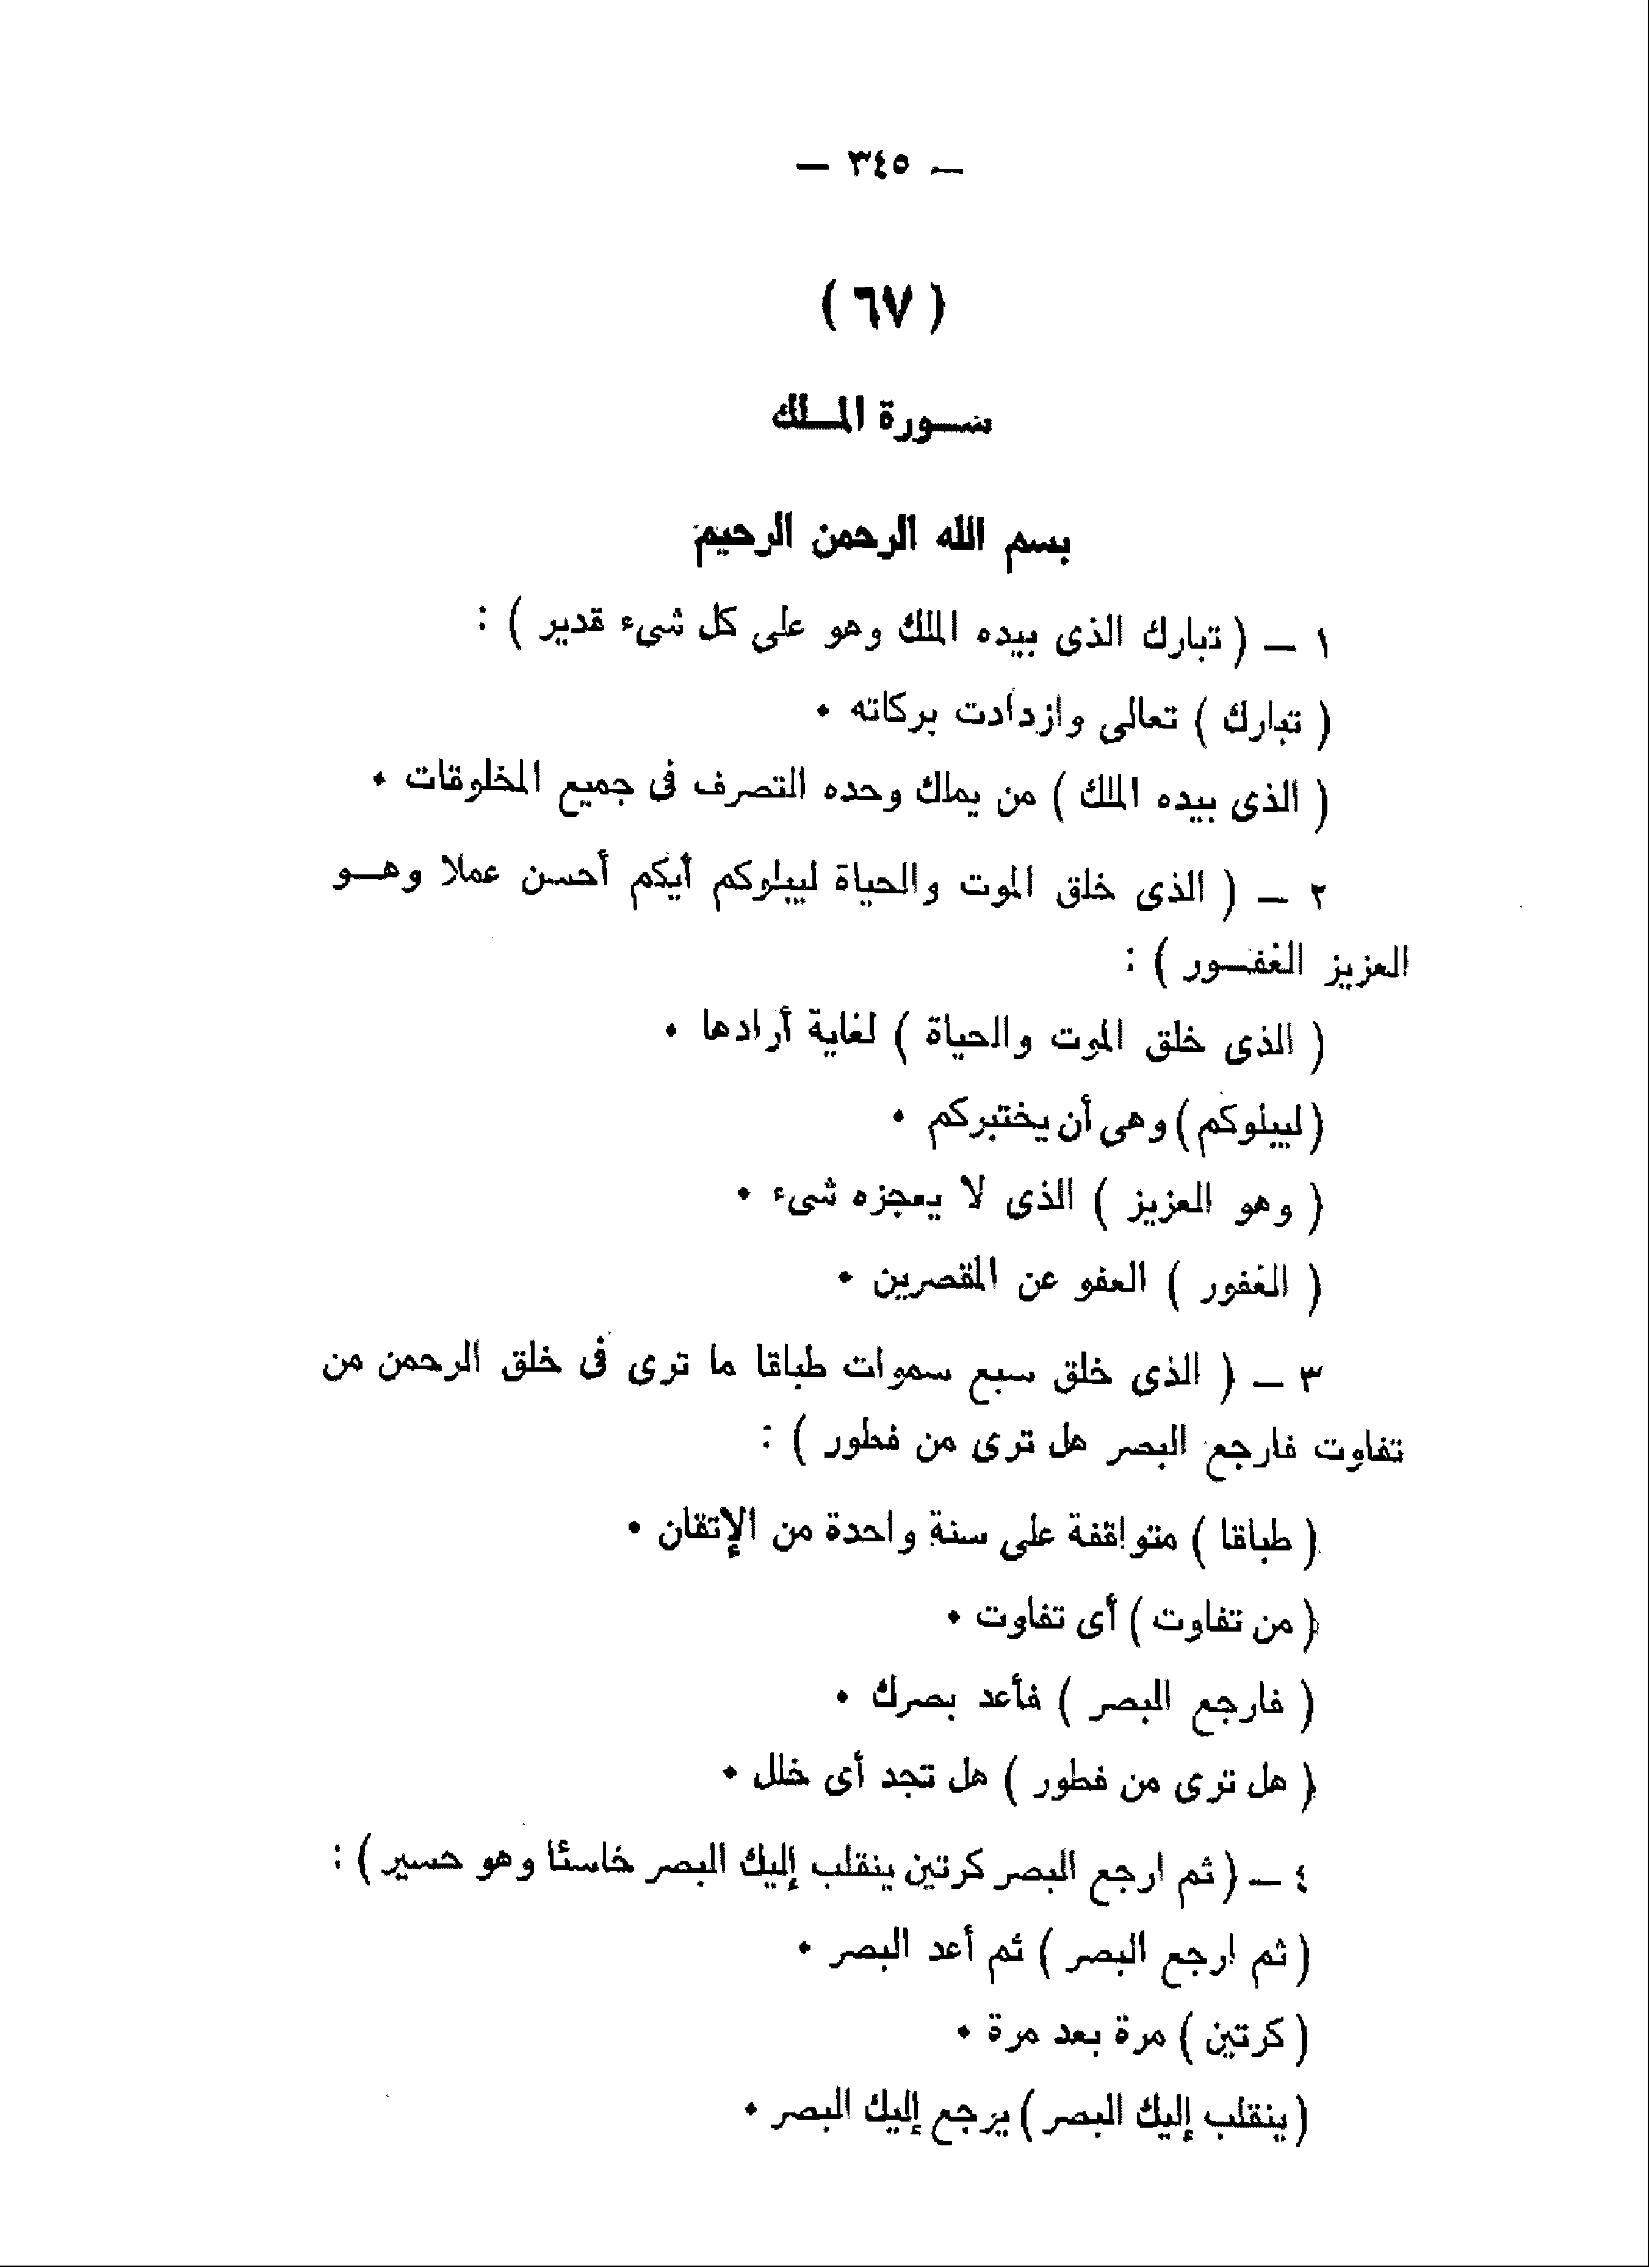 — ٣٤٥ —
( ٦٧ )
ســورة المــلك
بسم الله الرحمن الرحيم
١ — ( تبارك الذى بيده الملك وهو على كل شىء قدير ) :
( تبارك ) تعالى وازدادت بركاته .
( الذى بيده الملك ) من يملك وحده التصرف فى جميع المخلوقات .
٢ — ( الذى خلق الموت والحياة ليبلوكم أيكم أحسن عملا وهــو
العزيز الغفــور ) :
( الذى خلق الموت والحياة ) لغاية أرادها .
( ليبلوكم ) وهى أن يختبركم .
( وهو العزيز ) الذى لا يعجزه شىء .
( الغفور ) العفو عن المقصرين .
٣ — ( الذى خلق سبع سموات طباقا ما ترى فى خلق الرحمن من
تفاوت فارجع البصر هل ترى من فطور ) :
( طباقا ) متواقفة على سنة واحدة من الإتقان .
( من تفاوت ) أى تفاوت .
( فارجع البصر ) فأعد بصرك .
( هل ترى من فطور ) هل تجد أى خلل .
٤ — ( ثم ارجع البصر كرتين ينقلب إليك البصر خاسئا وهو حسير ) :
( ثم ارجع البصر ) ثم أعد البصر .
( كرتين ) مرة بعد مرة .
( ينقلب إليك البصر ) يرجع إليك البصر .